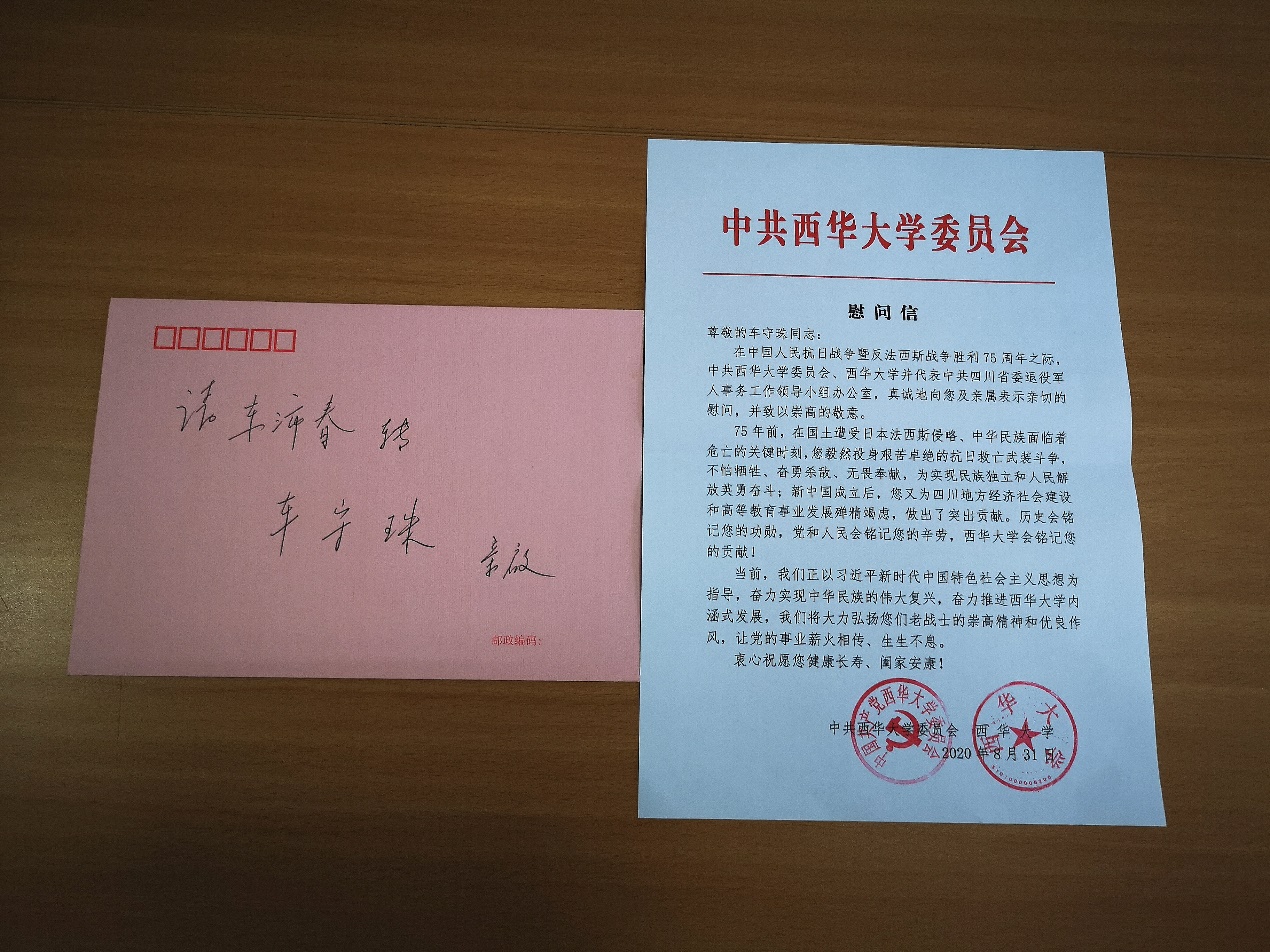 请车沛春转
车守珠
亲启
邮政编码:
中共西华大学委员会
慰问信
尊敬的车守珠同志:
在中国人民抗日战争暨反法西斯战争胜利75周年之际,
中共西华大学委员会、西华大学并代表中共四川省委退役军
人事务工作领导小组办公室,真诚地向您及亲属表示亲切的
慰问,并致以崇高的敬意。
75年前,在国土遭受日本法西斯侵略、中华民族面临着
危亡的关键时刻,您毅然投身艰苦卓绝的抗日救亡武装斗争,
不怕牺牲、奋勇杀敌、无畏奉献,为实现民族独立和人民解
放英勇奋斗;新中国成立后,您又为四川地方经济社会建设
和高等教育事业发展殚精竭虑,做出了突出贡献。历史会铭
记您的功勋,党和人民会铭记您的辛劳,西华大学会铭记您
的贡献!
当前,我们正以习近平新时代中国特色社会主义思想为
指导,奋力实现中华民族的伟大复兴,奋力推进西华大学内
涵式发展,我们将大力弘扬您们老战士的崇高精神和优良作
风,让党的事业薪火相传、生生不息。
衷心祝愿您健康长寿、阖家安康!
中共西华大学委员会 西华大学
2020年8月31日
中国共产党西华大学委员会
西华大学